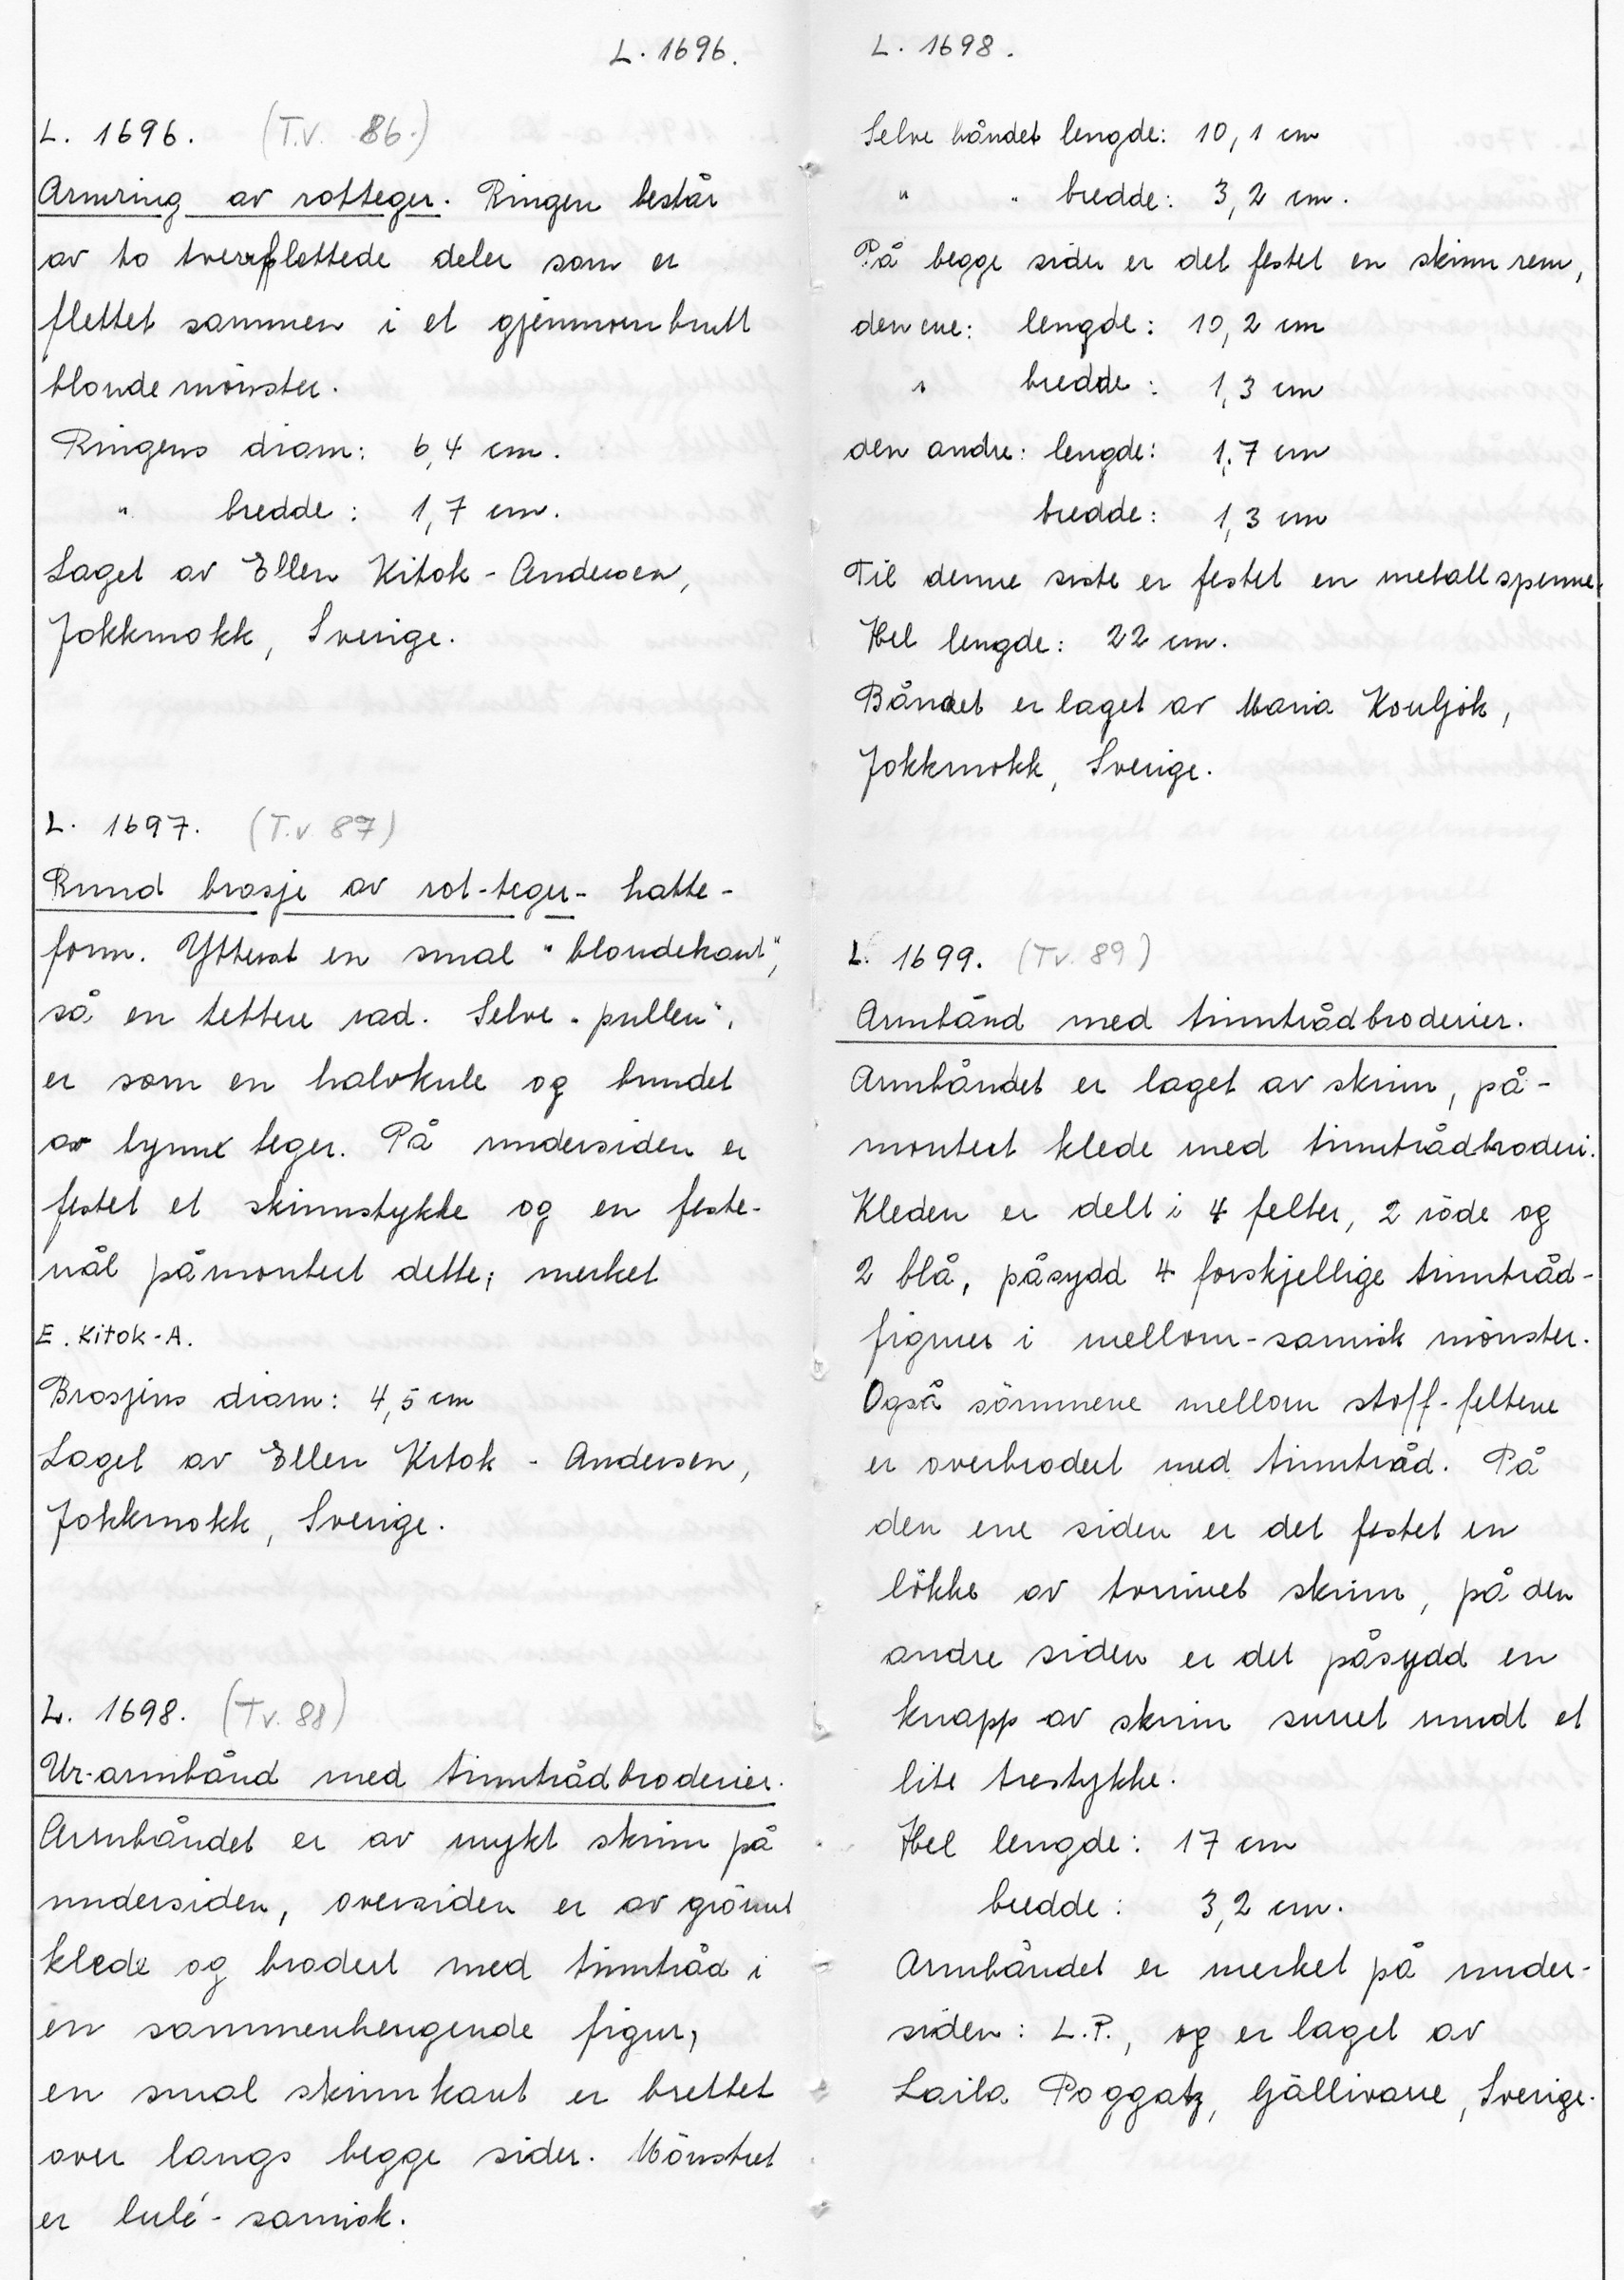 L. 1696.
L. 1696. (T.V. 86.)
Armring av rotteger. Ringen består
av to tverrflettede deler som er
flettet sammen i et gjennombrutt
blondemönster.
Ringens diam: 6,4 cm.
" bredde: 1,7 cm.
Laget av Ellen Kitok-Andersen,
Jokkmokk, Sverige.
L. 1697. (T.v. 87)
Rund brosje av rot-teger- hatte-
form. Ytterst en smal "blondekant",
så en tettere rad. Selve "pullen",
er som en halvkule og bundet
av tynne teger. På undersiden er
festet et skinnstykke og en feste-
nål påmontert dette; merket
E. Kitok-A.
Brosjens diam: 4,5 cm
Laget av Ellen Kitok - Andersen,
Jokkmokk, Sverige.
L. 1698. (Tv. 88)
Ur-armbånd med tinntrådbroderier.
Armbåndet er av mykt skinn på
undersiden, oversiden er av grönnt
klede og brodert med tinntråd i
en sammenhengende figur,
en smal skinnkant er brettet
over langs begge sider. Mönstret
er lulé-samisk.
L. 1698.
Selve båndet lengde: 10,1 cm
" " bredde: 3,2 cm.
På begge sider er det festet en skinnrem,
den ene: lengde: 10,2 cm
" bredde: 1,3 cm
den andre: lengde: 1,7 cm
bredde: 1,3 cm
Til denne siste er festet en metallspenne.
Hel lengde: 22 cm.
Båndet er laget av Maria Kouljok,
Jokkmokk, Sverige.
L. 1699. (Tv. 89)
Armbånd med tinntrådbroderier.
Armbåndet er laget av skinn, på-
montert klede med tinntrådbroderi.
Kleden er delt i 4 felter, 2 röde og
2 blå, påsydd 4 forskjellige tinntråd-
figurer i mellom-samisk mönster.
Også sömmene mellom stoff-feltene
er overbrodert med tinntråd. På
den ene siden er det festet en
lökke av tvinnet skinn, på den
andre siden er det påsydd en
knapp av skinn surret rundt et
lite trestykke.
Hel lengde: 17 cm
bredde: 3,2 cm.
Armbåndet er merket på under-
siden: L.P., og er laget av
Laila Poggatz, Gjällivarre, Sverige.